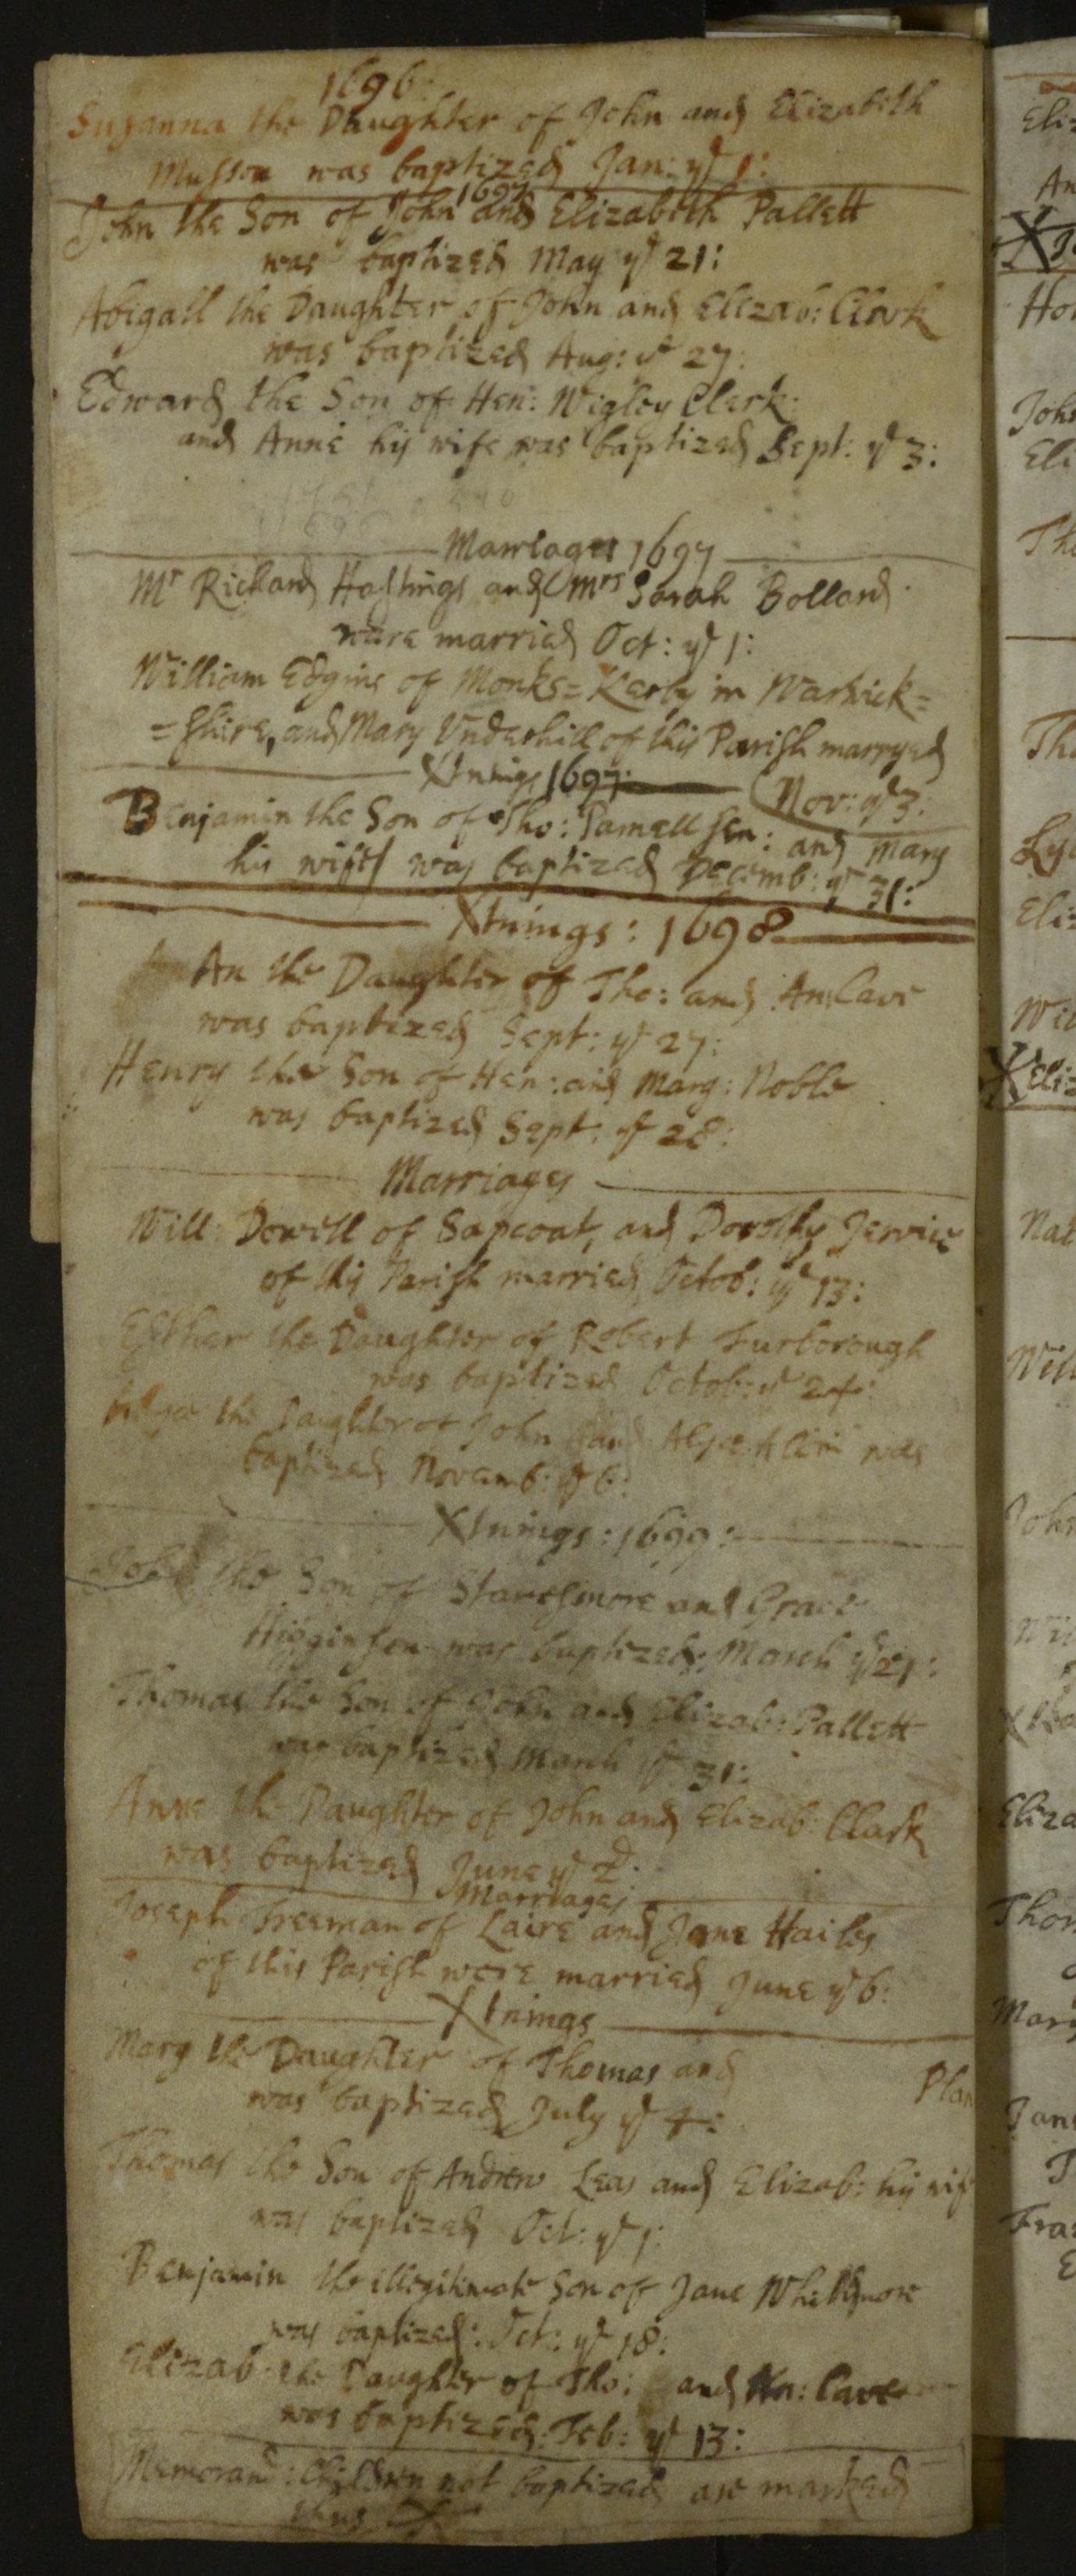 1696:
Susanna the Daughter of John and Elizabeth
Musson was baptized Jan: ye 1:
1697
John the Son of John and Elizabeth Pallett
was baptized May ye 21:
Abigall the Daughter of John and Elizab: Clark
was baptized Aug: ye 27:
Edward the Son of Hen: Wigley Clerk
and Anne his wife was baptized Sept: ye 3:
Marriages 1697
Mr Richard Hastings and Mrs Sarah Bollard
were married Oct: ye 1:
William Edgins of Monks=Kerby in Warwick=
=shire, and Mary Underhill of this Parish marryed
Nov: ye 3:
Xtnings 1697:
Benjamin the Son of Tho: Parnell sen: and Mary
his wife was baptized Decemb: ye 31:
Xtnings: 1698
An the Daughter of Tho: and An Cave
was baptized Sept: ye 27:
Henry the Son of Hen: and Marg: Noble
was baptized Sept: ye 28:
Marriages
Will: Dowell of Sapcoat, and Dorothy Jervice
of this Parish married Octob: ye 13:
Esther the Daughter of Robert Furborough
was baptized Octob: ye 24:
the Daughter of John and was
baptized Novemb: ye 6:
Xtnings: 1699:
John the Son of Staresmore and Grace
Higginson was baptized: March ye 21:
Thomas the Son of John and Elizab: Pallett
was baptized March ye 31:
Anne the Daughter of John and Elizab: Clark
was baptized June ye 2d:
Marriages
Joseph Freeman of Laire and Jane Hailes
of this Parish were married June ye 6:
Xtnings
Mary the Daughter of Thomas and
was baptized July ye 4:
Plan
Thomas the Son of Andrew Leas and Elizab: his wife
was baptized Oct: ye 1:
Benjamin the illegitimate Son of Jane Whitmore
was baptized: Oct: ye 18:
Elizab: the Daughter of Tho: and An: Cave
was baptized: Feb: ye 13:
Memorand: Children not baptized are marked
thus X